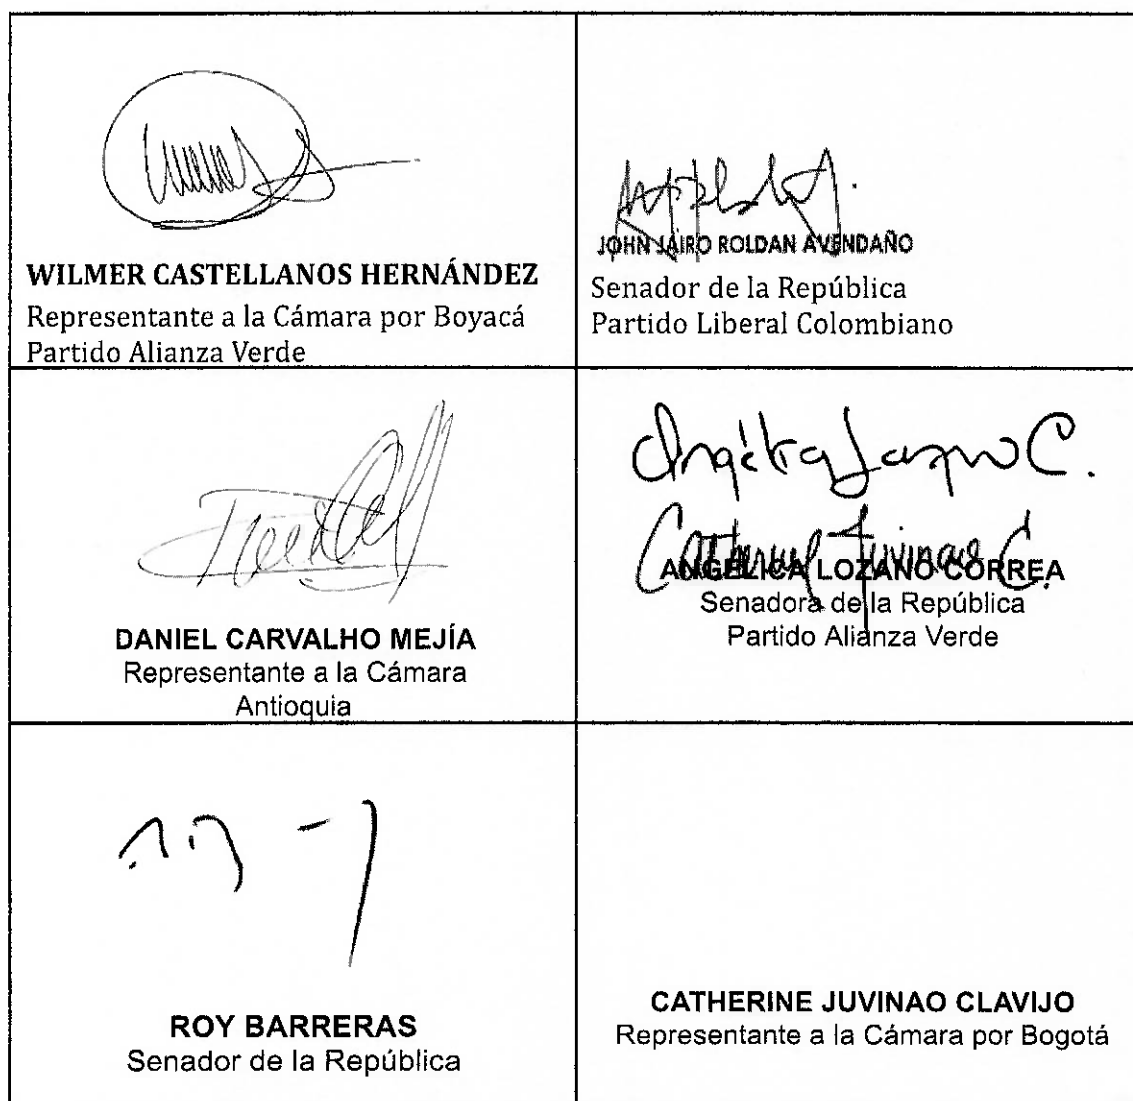 WILMER CASTELLANOS HERNÁNDEZ
Representante a la Cámara por Boyacá
Partido Alianza Verde
JOHN JAIRO ROLDAN AVENDAÑO
Senador de la República
Partido Liberal Colombiano
DANIEL CARVALHO MEJÍA
Representante a la Cámara
Antioquia
Angélica Lozano C.
Catherine Juvinao C.
ANGÉLICA LOZANO CORREA
Senadora de la República
Partido Alianza Verde
ROY BARRERAS
Senador de la República
CATHERINE JUVINAO CLAVIJO
Representante a la Cámara por Bogotá